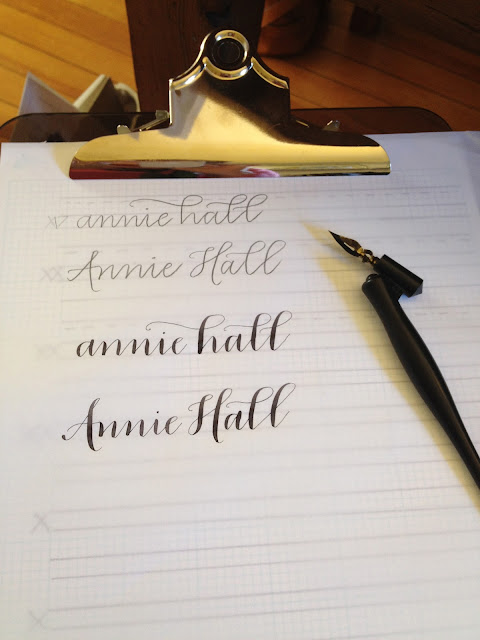 annie hall
Annie Hall
annie hall
Annie Hall